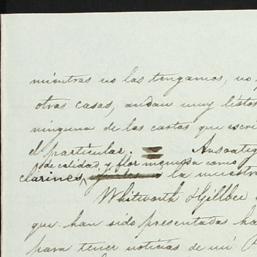 mientras no las tengamos, no p
otras casas, andan muy listos
ninguna de las cartas que escri
el particular. = Nosotros
de calidad y flor como
clarines, la muestra
Whitworth & Gillbee
que han sido presentadas ha
para tener noticias de mi